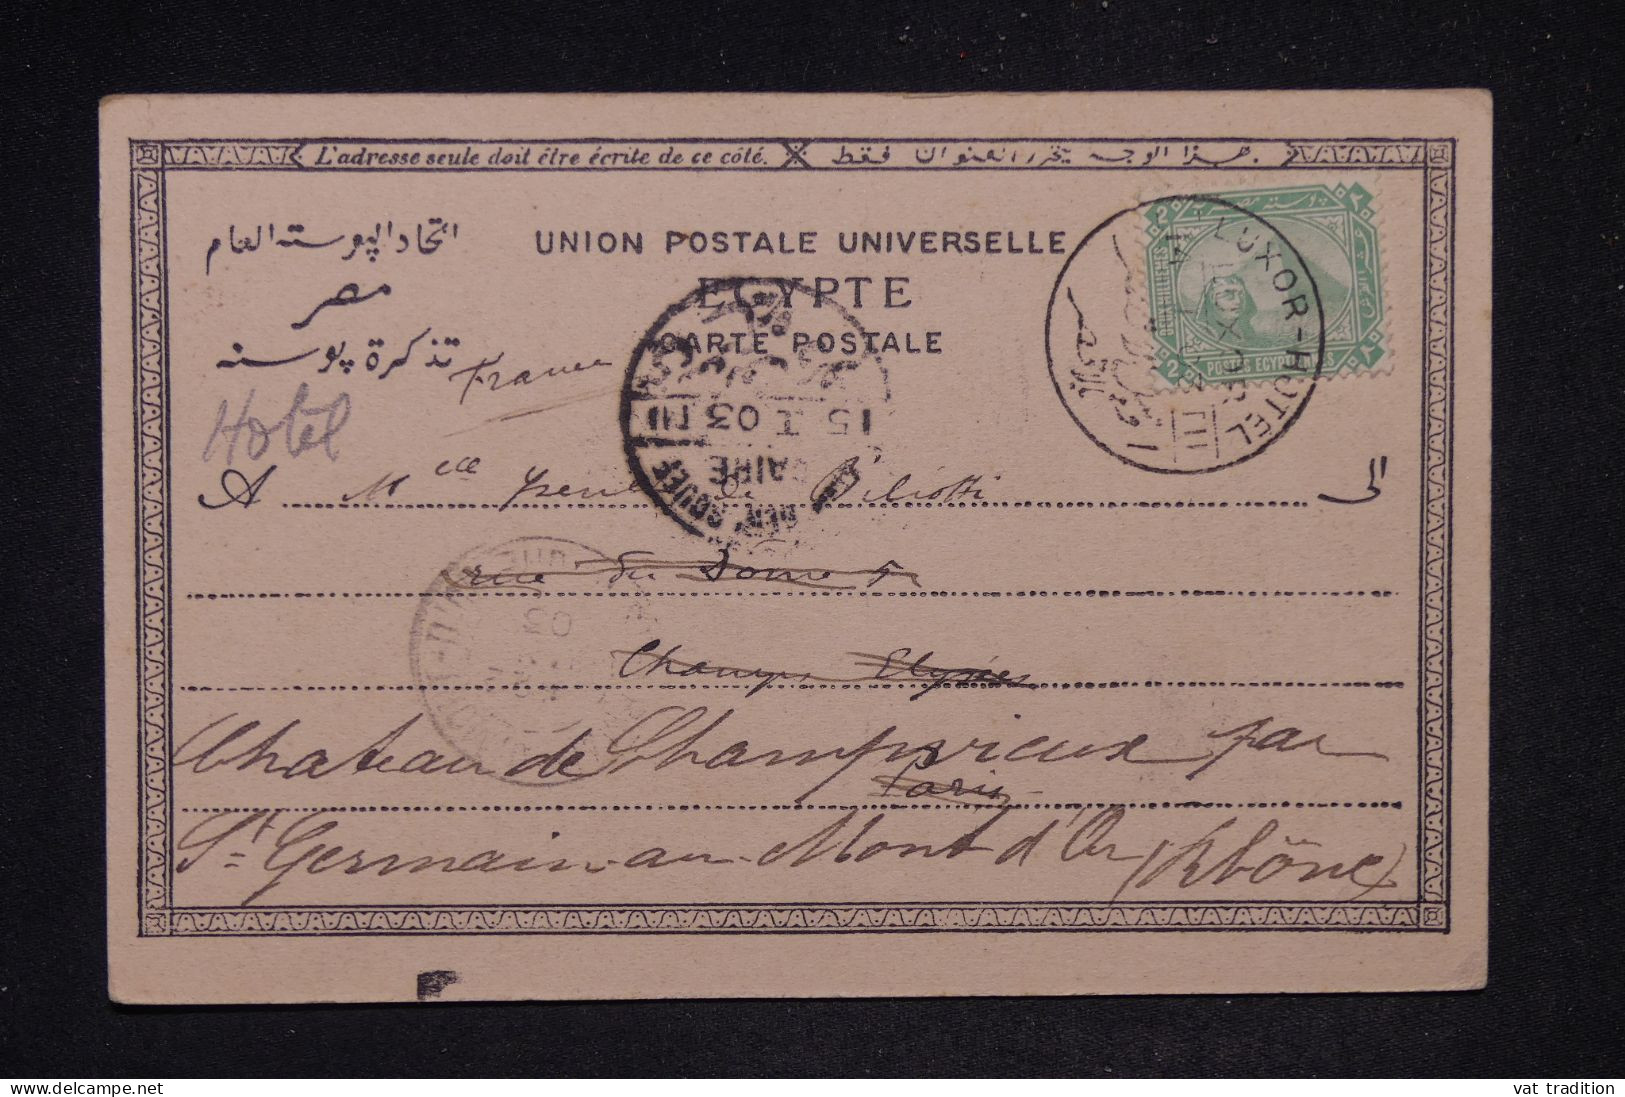 L'adresse seule doit être écrite de ce côté. هذا الوجه يحرر العنوان فقط.
اتحاد البوسته العام UNION POSTALE UNIVERSELLE
مصر EGYPTE
تذكرة بوسته CARTE POSTALE
France
Hotel
A Mlle de Biliotti الى
rue du Dome 5
Champs Elysées
Chateau de Champvieux par
Paris
St Germain-au-Mont d'Or (Rhône)
LUXOR-HOTEL
2 2
POSTES EGYPTIENNES
15 I 03
CAIRE
03
vat tradition